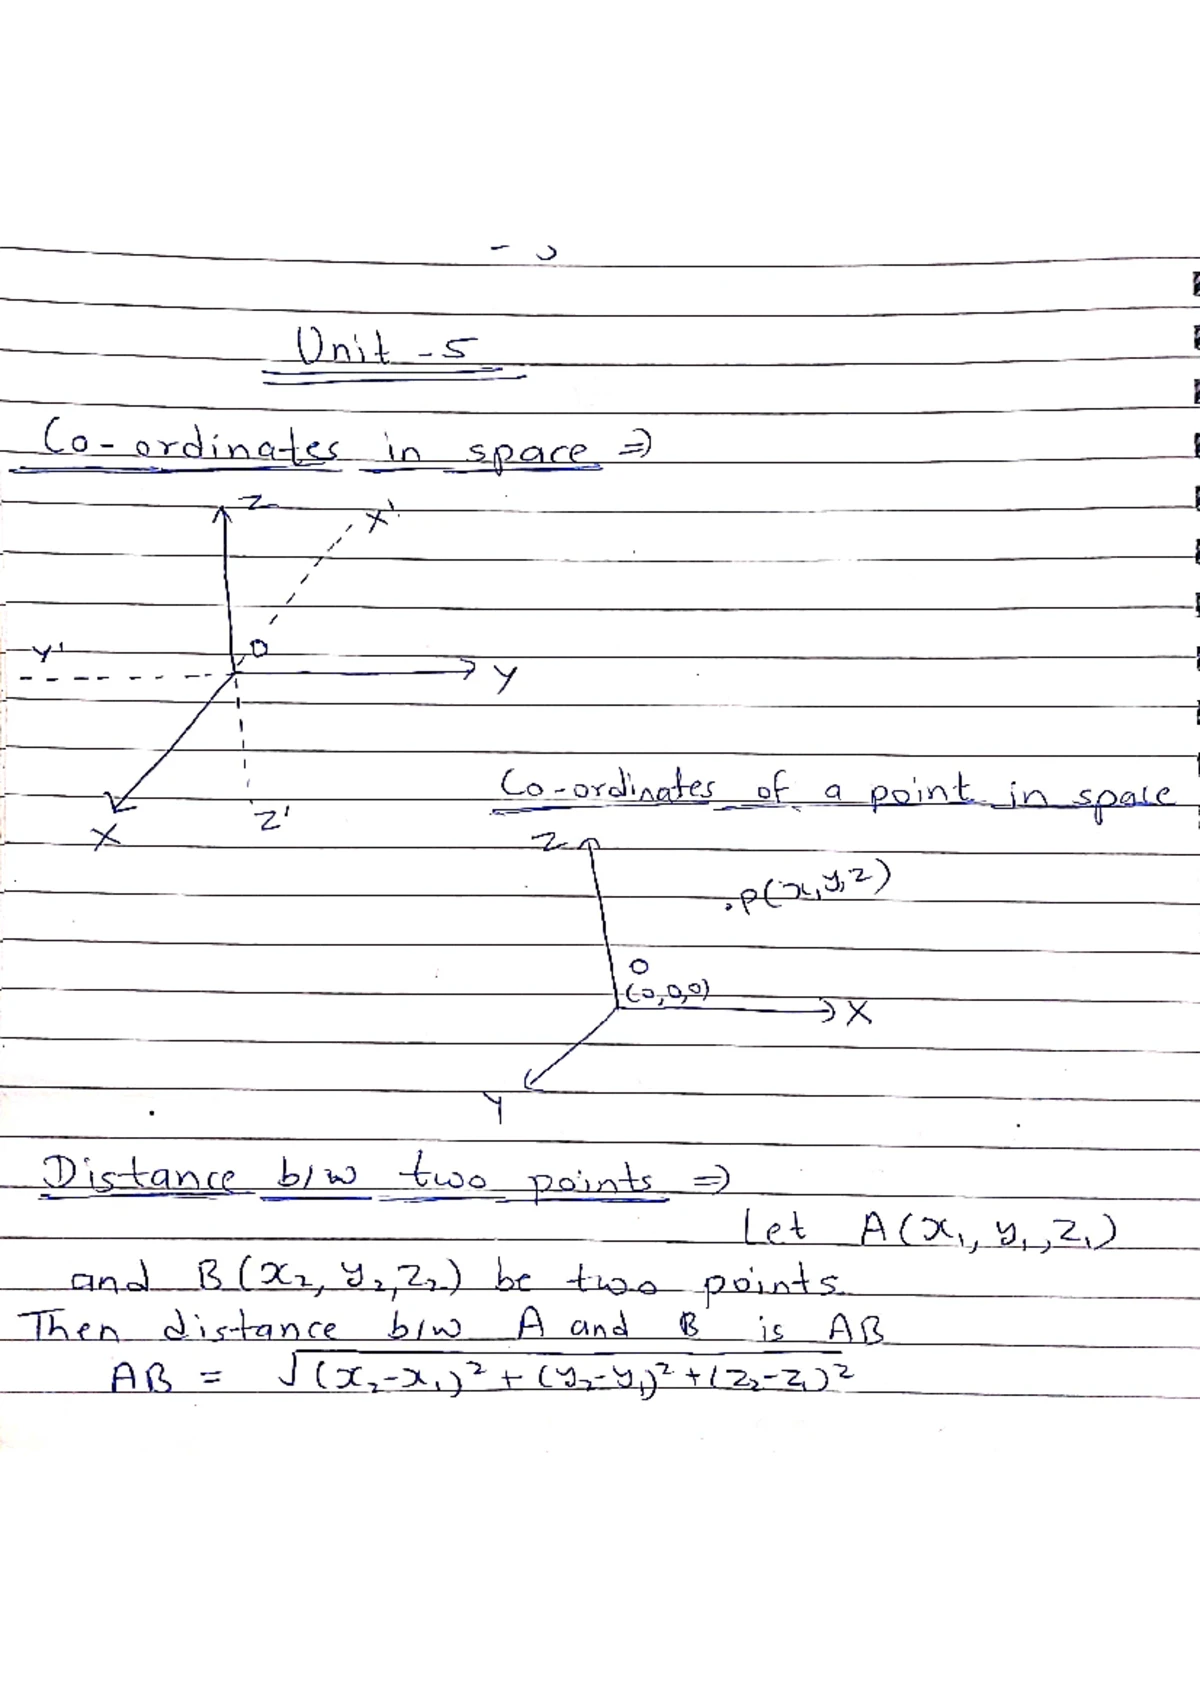 Unit - 5
Co-ordinates in space ⇒
Z
X'
O
Y'
Y
X
Z'
Co-ordinates of a point in space
Z
.P(x,y,z)
O
(0,0,0)
X
Y
Distance b/w two points ⇒
Let A(x₁, y₁, z₁)
and B(x₂, y₂, z₂) be two points
Then distance b/w A and B is AB
AB = √(x₂-x₁)²+(y₂-y₁)²+(z₂-z₁)²